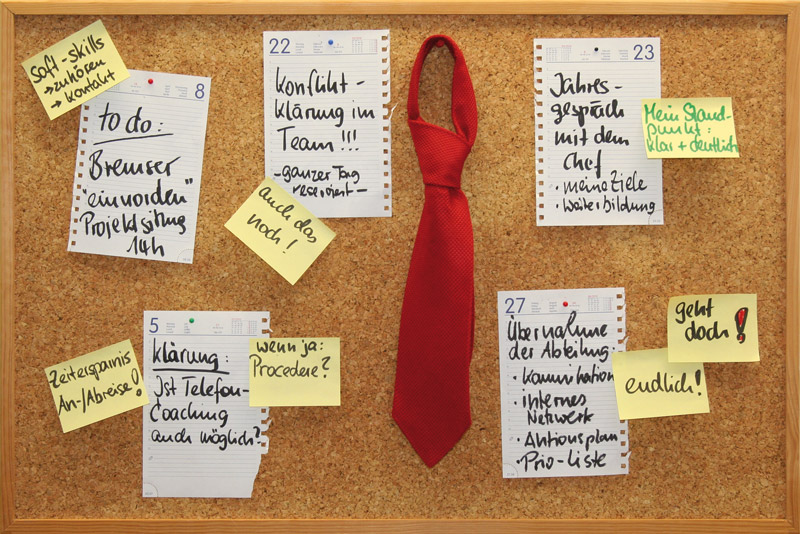 Soft-skills
→ zuhören
→ Kontakt
8
to do:
Bremser
"einnorden"
Projektsitzung
14h
22
Konflikt-
klärung im
Team!!!
-ganzer Tag
reserviert-
auch das
noch!
23
Jahres-
gespräch
mit dem
Chef
• meine Ziele
• Weiterbildung
Mein Stand-
punkt:
klar + deutlich
5
Klärung:
Ist Telefon-
Coaching
auch möglich?
Zeitersparnis
An-/Abreise!
wenn ja:
Procedere?
27
Übernahme
der Abteilung:
• Kommunikation
• internes
Netwerk
• Aktionsplan
• Prio-Liste
endlich!
geht
doch!